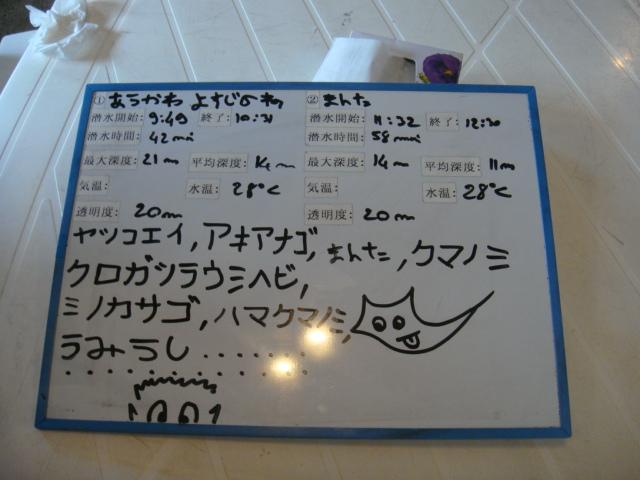 ① あらかわ よすじのね ② まんた
潜水開始: 9:49 終了: 10:31 潜水開始: 11:32 終了: 12:30
潜水時間: 42min 潜水時間: 58min
最大深度: 21m 平均深度: 14m 最大深度: 14m 平均深度: 11m
気温: 水温: 28℃ 気温: 水温: 28℃
透明度: 20m 透明度: 20m
ヤッコエイ, アキアナゴ, まんた, クマノミ
クロガシラウミヘビ,
ミノカサゴ, ハマクマノミ,
うみうし .......